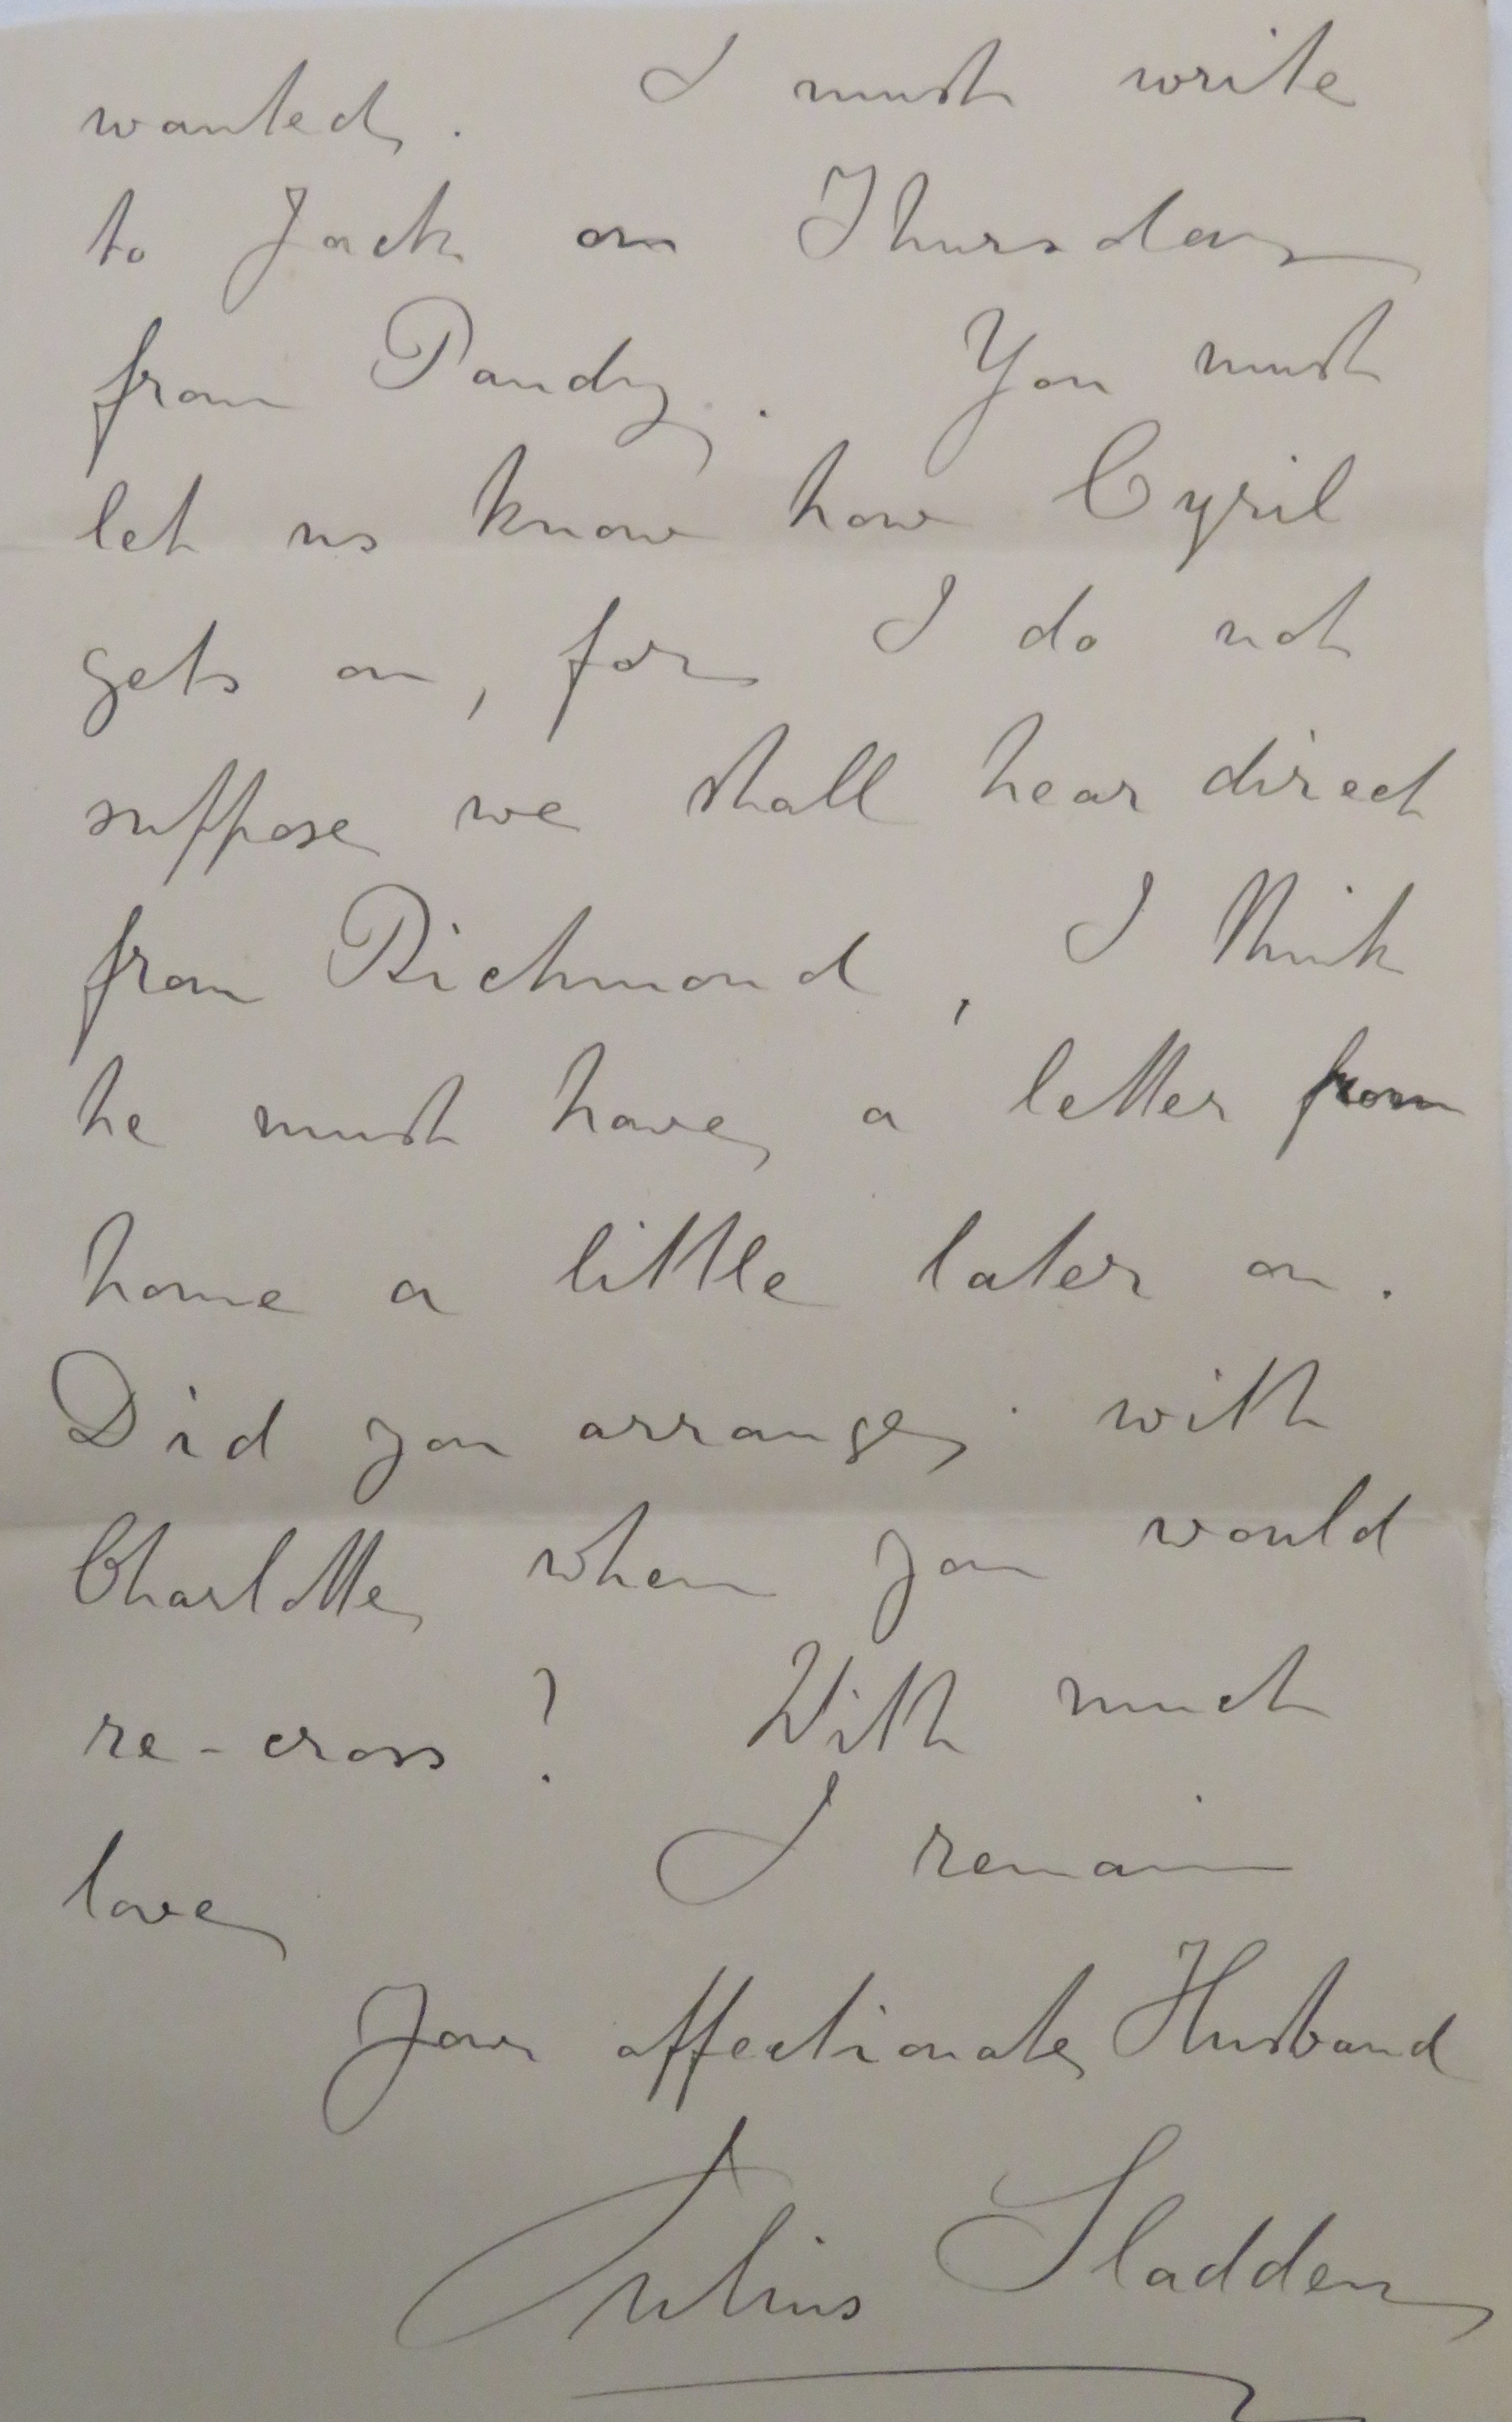 wanted. I must write
to Jack on Thursday
from Pandy. You must
let us know how Cyril
gets on, for I do not
suppose we shall hear direct
from Richmond, I think
he must have a letter from
home a little later on.
Did you arrange with
Charlotte when you would
re-cross? With much
love I remain
Your affectionate Husband
Julius Sladden